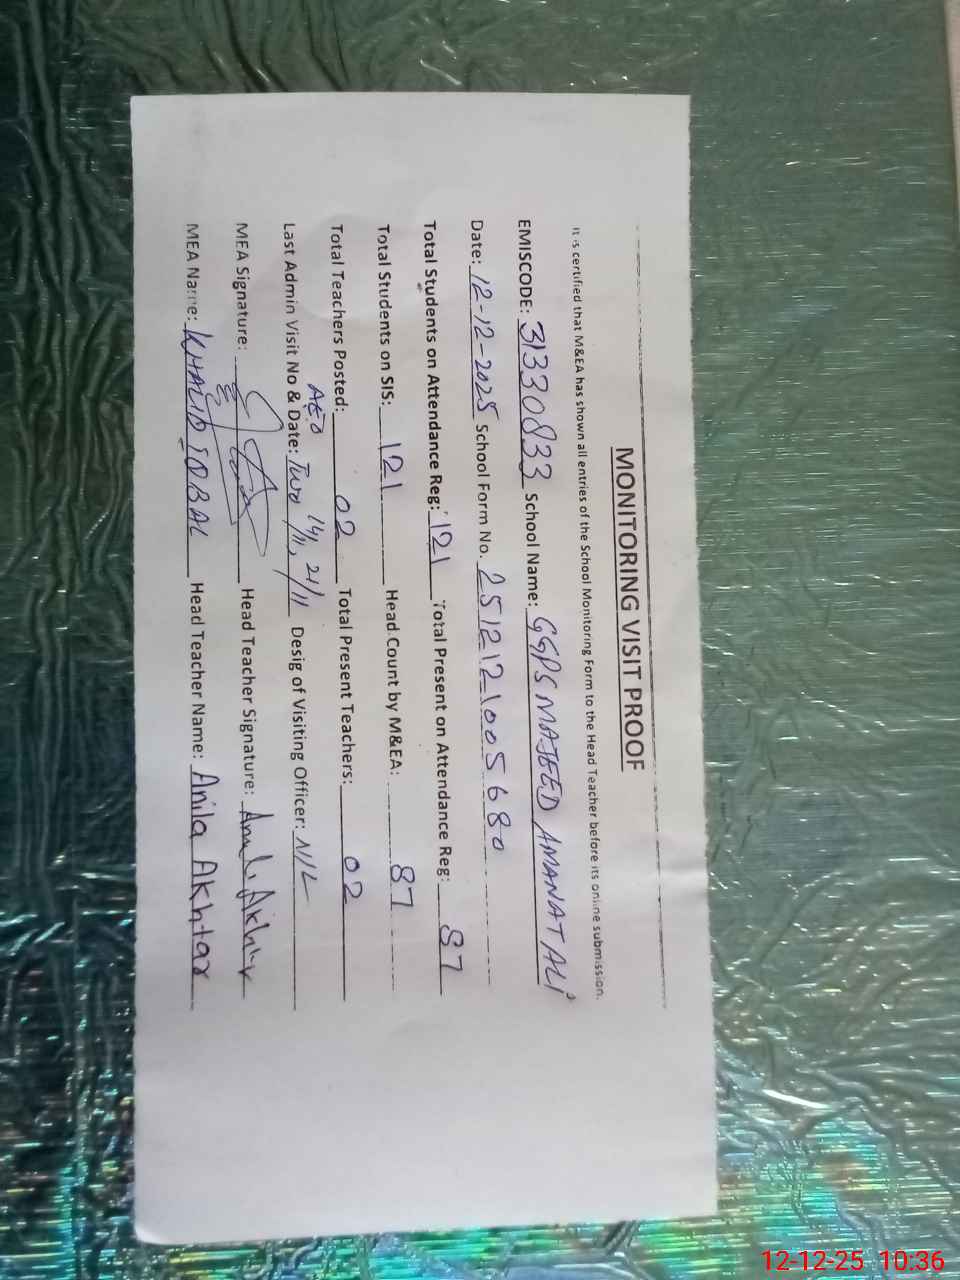 MONITORING VISIT PROOF
It is certified that M&EA has shown all entries of the School Monitoring Form to the Head Teacher before its online submission.
EMISCODE: 31330833 School Name: GGPS MAJEED AMANAT ALI
Date: 12-12-2025 School Form No. 2512121005680
Total Students on Attendance Reg: 121 Total Present on Attendance Reg: 87
Total Students on SIS: 121 Head Count by M&EA: 87
Total Teachers Posted: 02 Total Present Teachers: 02
AEO
Last Admin Visit No & Date: Two 14/11, 21/11 Desig of Visiting Officer: NIL
MEA Signature: Head Teacher Signature: Anila Akhtar
MEA Name: KHALID IQBAL Head Teacher Name: Anila Akhtar
12-12-25 10:36